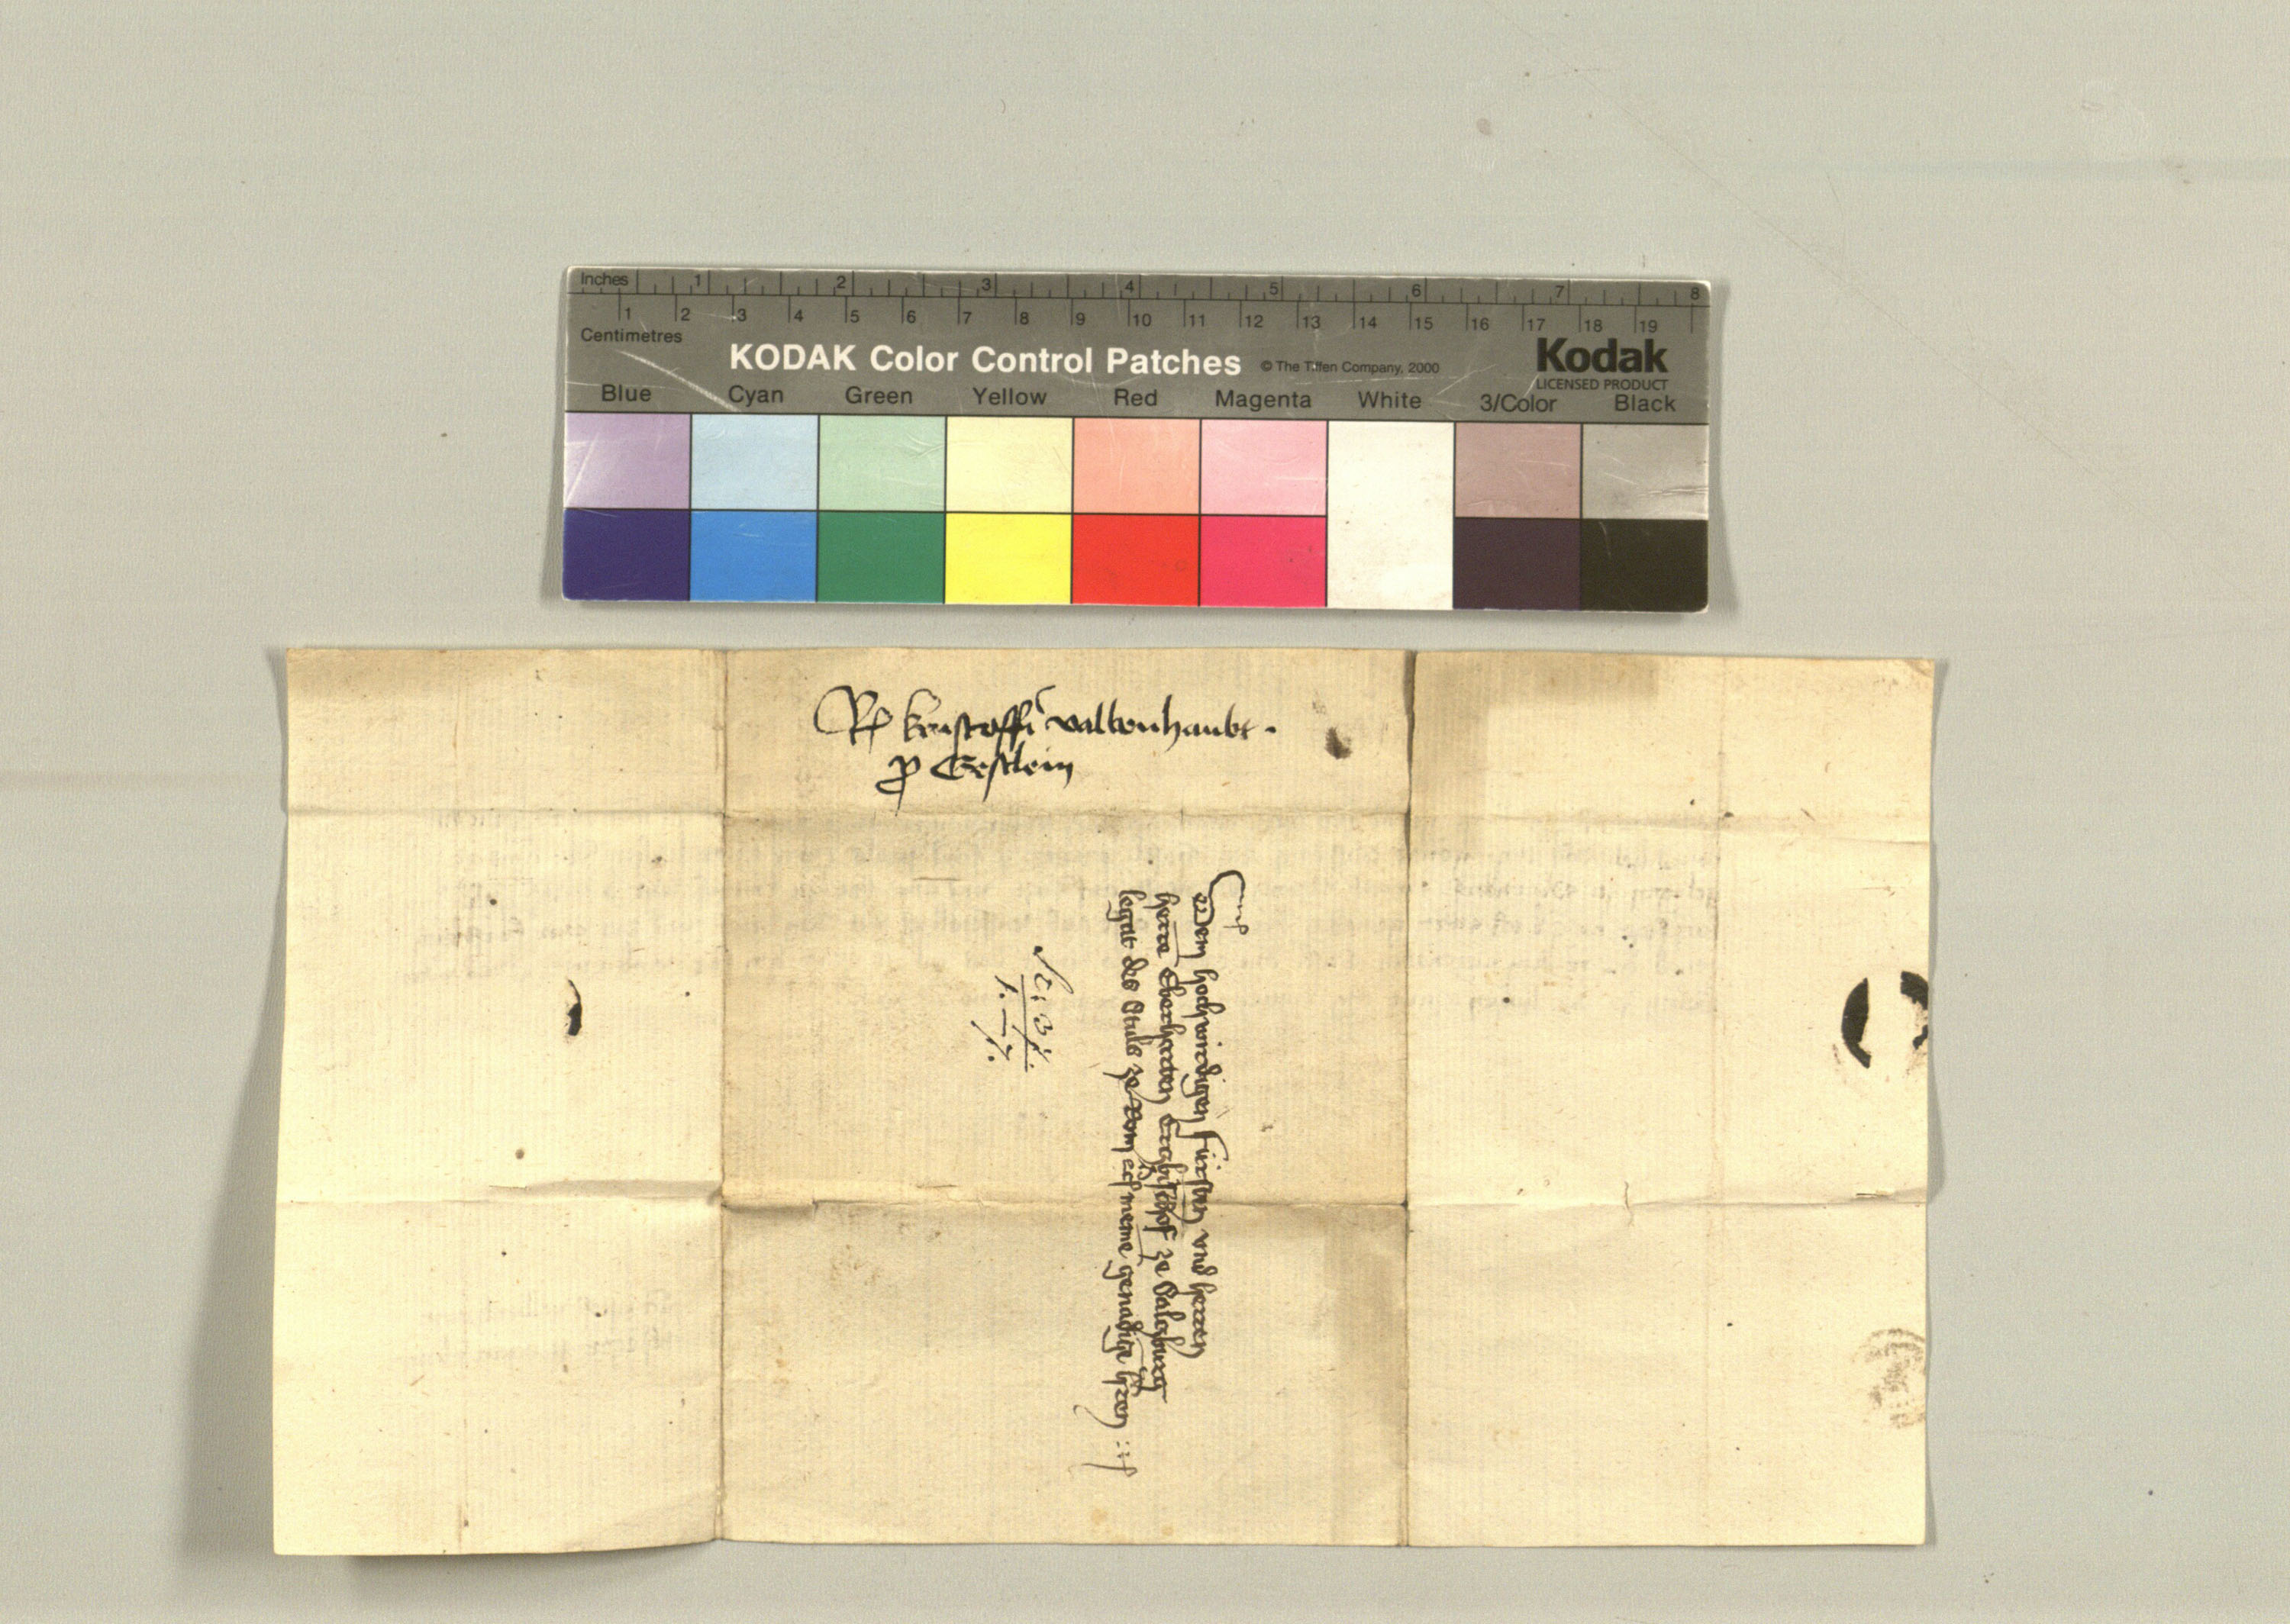 Inches 1 2 3 4 5 6 7 8
1 2 3 4 5 6 7 8 9 10 11 12 13 14 15 16 17 18 19
Centimetres
KODAK Color Control Patches © The Tiffen Company, 2000 Kodak
LICENSED PRODUCT
Blue Cyan Green Yellow Red Magenta White 3/Color Black
kristoffi valkenhaubt.
p Gestlein
Dem hochwirdigen Fürsten vnd herren
herre Eberharten Erzbischof ze Salczburg
legat des Stuls ze Rom meine genadige hren